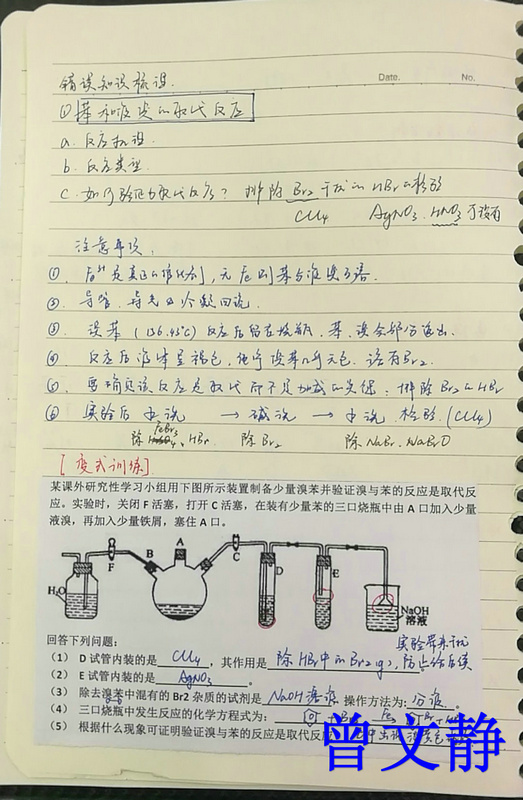 错误知识标识.
Date. No.
① 苯和液溴的取代反应
a. 反应机理
b. 反应类型
c. 如何验证为取代反应？ 排除 Br2 干扰 HBr的检验
CCl4 AgNO3. HNO3 可没有
注意事项.
②. 导管. 导气及冷凝回流.
③. 溴苯 (156.43℃) 反应后留在烧瓶, 苯, 溴会部分逸出.
④. 反应后液体呈褐色, 纯净溴苯几乎无色. 溶有Br2.
⑤. 要确定该反应是取代而不是加成的关键: 排除Br2和HBr
⑥ 实验后 水洗 → 碱洗 → 水洗 检验 (CCl4)
除 FeBr3 HBr 除Br2 除NaBr. NaBrO
[变式训练]
某课外研究性学习小组用下图所示装置制备少量溴苯并验证溴与苯的反应是取代反
应。实验时，关闭 F 活塞，打开 C 活塞，在装有少量苯的三口烧瓶中由 A 口加入少量
液溴，再加入少量铁屑，塞住 A 口。
A
F B C
D E
H2O
NaOH
溶液
回答下列问题：
（1） D 试管内装的是 CCl4 ，其作用是 除HBr中的Br2(g), 防止给后续
实验带来干扰
（2） E 试管内装的是 AgNO3 。
（3） 除去溴苯中混有的 Br2 杂质的试剂是 NaOH溶液 操作方法为: 分液
（4） 三口烧瓶中发生反应的化学方程式为：
（5） 根据什么现象可证明验证溴与苯的反应是取代反应
曾文静